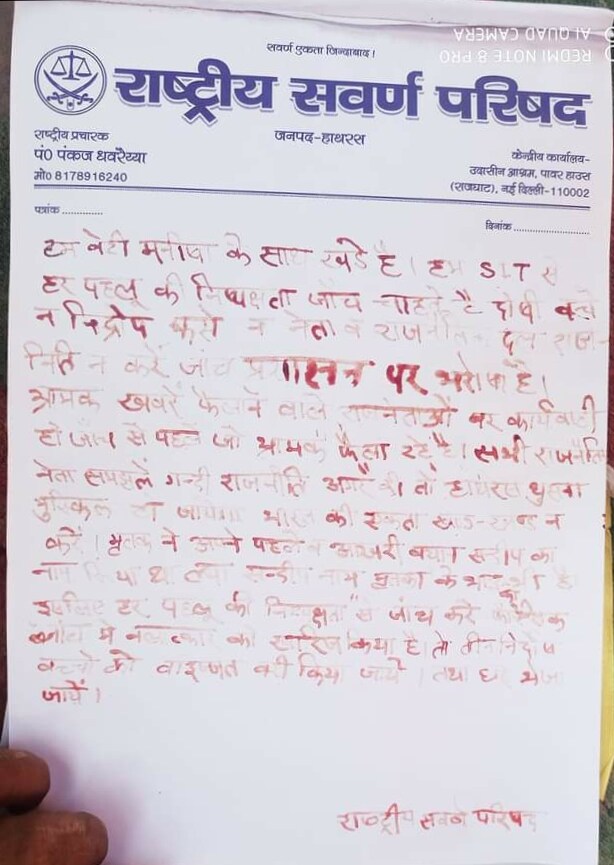 सवर्ण एकता जिन्दाबाद!
राष्ट्रीय सवर्ण परिषद
राष्ट्रीय प्रचारक
जनपद-हाथरस
पं0 पंकज धवरैय्या
मो0 8178916240
केन्द्रीय कार्यालय-
उदासीन आश्रम, पावर हाउस
(राजघाट), नई दिल्ली-110002
पत्रांक ............
दिनांक ..............
हम बेटी मनीषा के साथ खडे है। हम SIT से
हर पहलू की निष्पक्षता जांच चाहते है दोषी
न नेता व राजनीतिक दल राज-
निति न करें जांच प्रशासन पर भरोषा है।
भ्रामक खबरें फैलाने वाले राजनेताओं पर कार्यवाही
हो जांच से पहले जो भ्रामक फैला रहे है। सभी राजनैतिक
नेता समझलें गन्दी राजनीति अगर की तो हाथरस घुसना
मुश्किल हो जायेगा भारत की एकता खण्ड-खण्ड न
करें। मृतक ने अपने पहले व आखरी बयान सन्दीप का
नाम लिया था तथा सन्दीप नाम मृतका के भाई का भी है।
इसलिए हर पहलू की निष्पक्षता से जांच करे
में बलात्कार को खारिज किया है। तो तीन निर्दोष
बच्चों को बाइज्जत बरी किया जाये। तथा घर भेजा
जायें।
राष्ट्रीय सवर्ण परिषद
REDMI NOTE 8 PRO
AI QUAD CAMERA